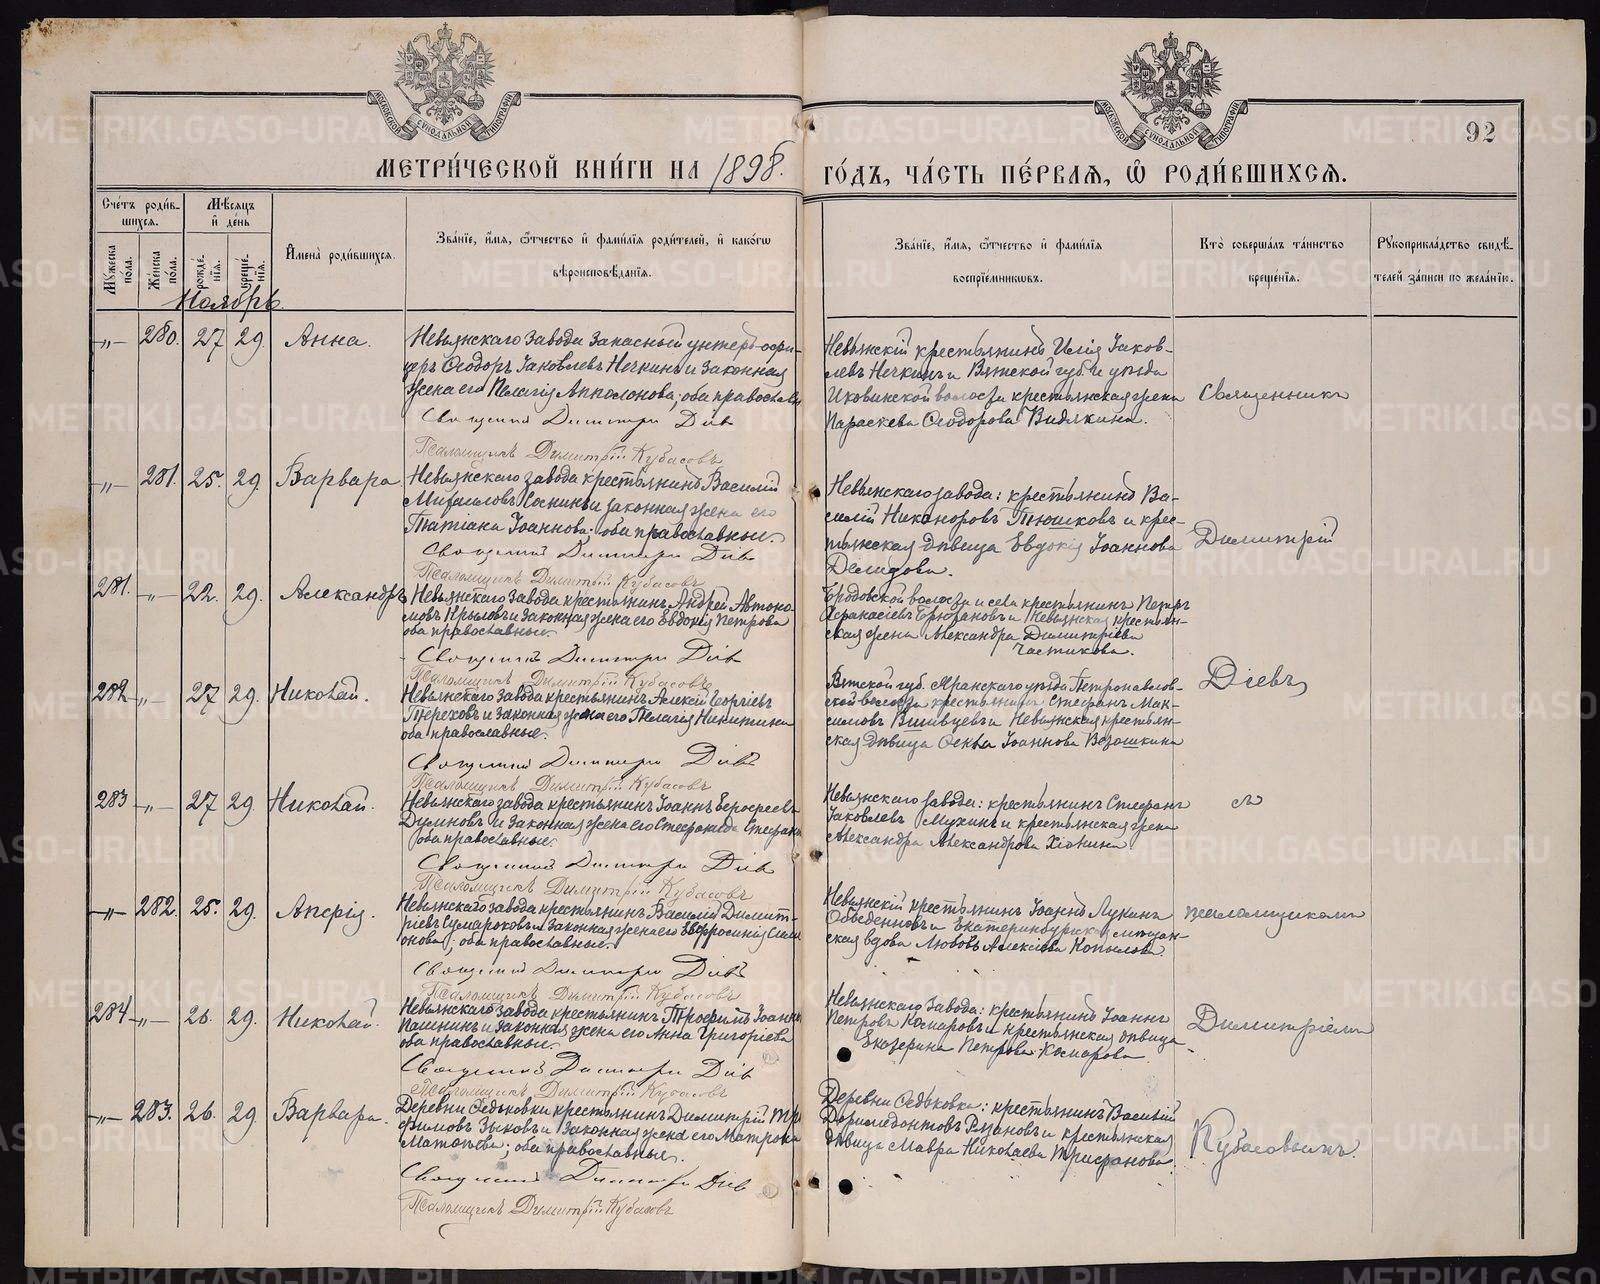 МОСКОВСКОЙ СѴНОДАЛЬНОЙ ТИПОГРАФІИ
МОСКОВСКОЙ СѴНОДАЛЬНОЙ ТИПОГРАФІИ
92
МЕТРИ́ЧЕСКОЙ КНИ́ГИ НА 1898. ГО́ДЪ, ЧА́СТЬ ПЕ́РВАѦ, Ѡ҆ РОДИ́ВШИХСѦ.
Сче́тъ роди́в-
шихсѧ.
Мѣ́сѧцъ
и҆ де́нь
Мꙋ́жеска по́ла.
Же́нска по́ла.
рожде́-
нїѧ.
креще́-
нїѧ.
И҆мена̀ роди́вшихсѧ.
Зва́нїе, и҆́мѧ, ѻ҆́тчество и҆ фами́лїѧ роди́телей, и҆ како́гѡ
вѣроисповѣ́данїѧ.
Зва́нїе, и҆́мѧ, ѻ҆́тчество и҆ фами́лїѧ
воспрїе́мникѡвъ.
Кто̀ соверша́лъ та́инство
креще́нїѧ.
Рꙋкоприкла́дство свидѣ́-
телей за́писи по жела́нїю.
Ноябрь.
-„- 280. 27 29. Анна.
Невьянскаго завода запасный унтеръ-офи-
церъ Ѳеодоръ Іаковлевъ Нечкинъ и законная
жена его Пелагія Апполонова; оба православн
Священникъ Димитрій Діев
Псаломщикъ Димитрій Кубасовъ
Невьянскій крестьянинъ Илія Іаков-
левъ Нечкинъ и Вятской губ. и уѣзда
волости крестьянская жена
Параскева Ѳеодорова Видякина.
Священникъ
-„- 281. 25. 29. Варвара
Невьянскаго завода крестьянинъ Василій
Михаиловъ и законная жена его
Татіана Іоаннова; оба православные.
Священникъ Димитрій Діев
Псаломщикъ Димитрій Кубасовъ
Невьянскаго завода: крестьянинъ Ва-
силій Никаноровъ Тюшковъ и крес-
тьянская дѣвица Евдокія Іоаннова
Демидова.
Димитрій
281. -„- 22. 29. Александръ
Невьянскаго завода крестьянинъ Андрей Автоно-
мовъ Крыловъ и законная жена его Евдокія Петрова
оба православные.
Священникъ Димитрій Діев
Псаломщикъ Димитрій Кубасовъ
Бродовской волости и села крестьянинъ Петръ
Аѳанасіевъ и Невьянская крестьян-
ская жена Александра Димитріева
Частикова.
Діевъ
282 -„- 27 29. Николай.
Невьянскаго завода крестьянинъ Алексій Георгіевъ
Тереховъ и законная жена его Пелагія Никитина
оба православные.
Священникъ Димитрій Діевъ
Псаломщикъ Димитрій Кубасовъ
Вятской губ. Яранскаго уѣзда Петропавлов-
ской волости крестьянинъ Стефанъ Мак-
симовъ и Невьянская крестьян-
ская дѣвица Ѳекла Іоаннова
283 -„- 27 29. Николай.
Невьянскаго завода крестьянинъ Іоаннъ Ероѳеевъ
и законная жена его Стефанида Стефан
оба православные.
Священникъ Димитрій Діев
Псаломщикъ Димитрій Кубасовъ
Невьянскаго завода: крестьянинъ Стефанъ
Іаковлевъ Мухинъ и крестьянская жена
Александра Александрова Хіонина
съ
-„- 282. 25. 29. Апфія.
Невьянскаго завода крестьянинъ Василій Димит-
ріевъ Сумароковъ и законная жена его Евфросинія Сим
онова; оба православные.
Священникъ Димитрій Діевъ
Псаломщикъ Димитрій Кубасовъ
Невьянскій крестьянинъ Іоаннъ Лукинъ
Обѣденновъ и Екатеринбургская мѣщан-
ская вдова Любовь Алексіева Копылова.
псаломщикомъ
284 -„- 26. 29. Николай.
Невьянскаго завода крестьянинъ Трофимъ Іоанно
Пашнинъ и законная жена его Анна Григоріева
оба православные.
Священникъ Димитрій Діев
Псаломщикъ Димитрій Кубасовъ
Невьянскаго завода: крестьянинъ Іоаннъ
Петровъ Комаровъ и крестьянская дѣвица
Екатерина Петрова Комарова
Димитріемъ
-„- 283. 26. 29. Варвара.
Деревни Ѳедьковки крестьянинъ Димитрій Тро
фимовъ Зыковъ и законная жена его Матрона
Матѳіева; оба православные.
Священникъ Димитрій Діев
Псаломщикъ Димитрій Кубасовъ
Деревни Ѳедьковка: крестьянинъ Василій
Доримедонтовъ Рязановъ и крестьянская
дѣвица Мавра Николаева Трифанова.
Кубасовымъ.
METRIKI.GASO-URAL.RU